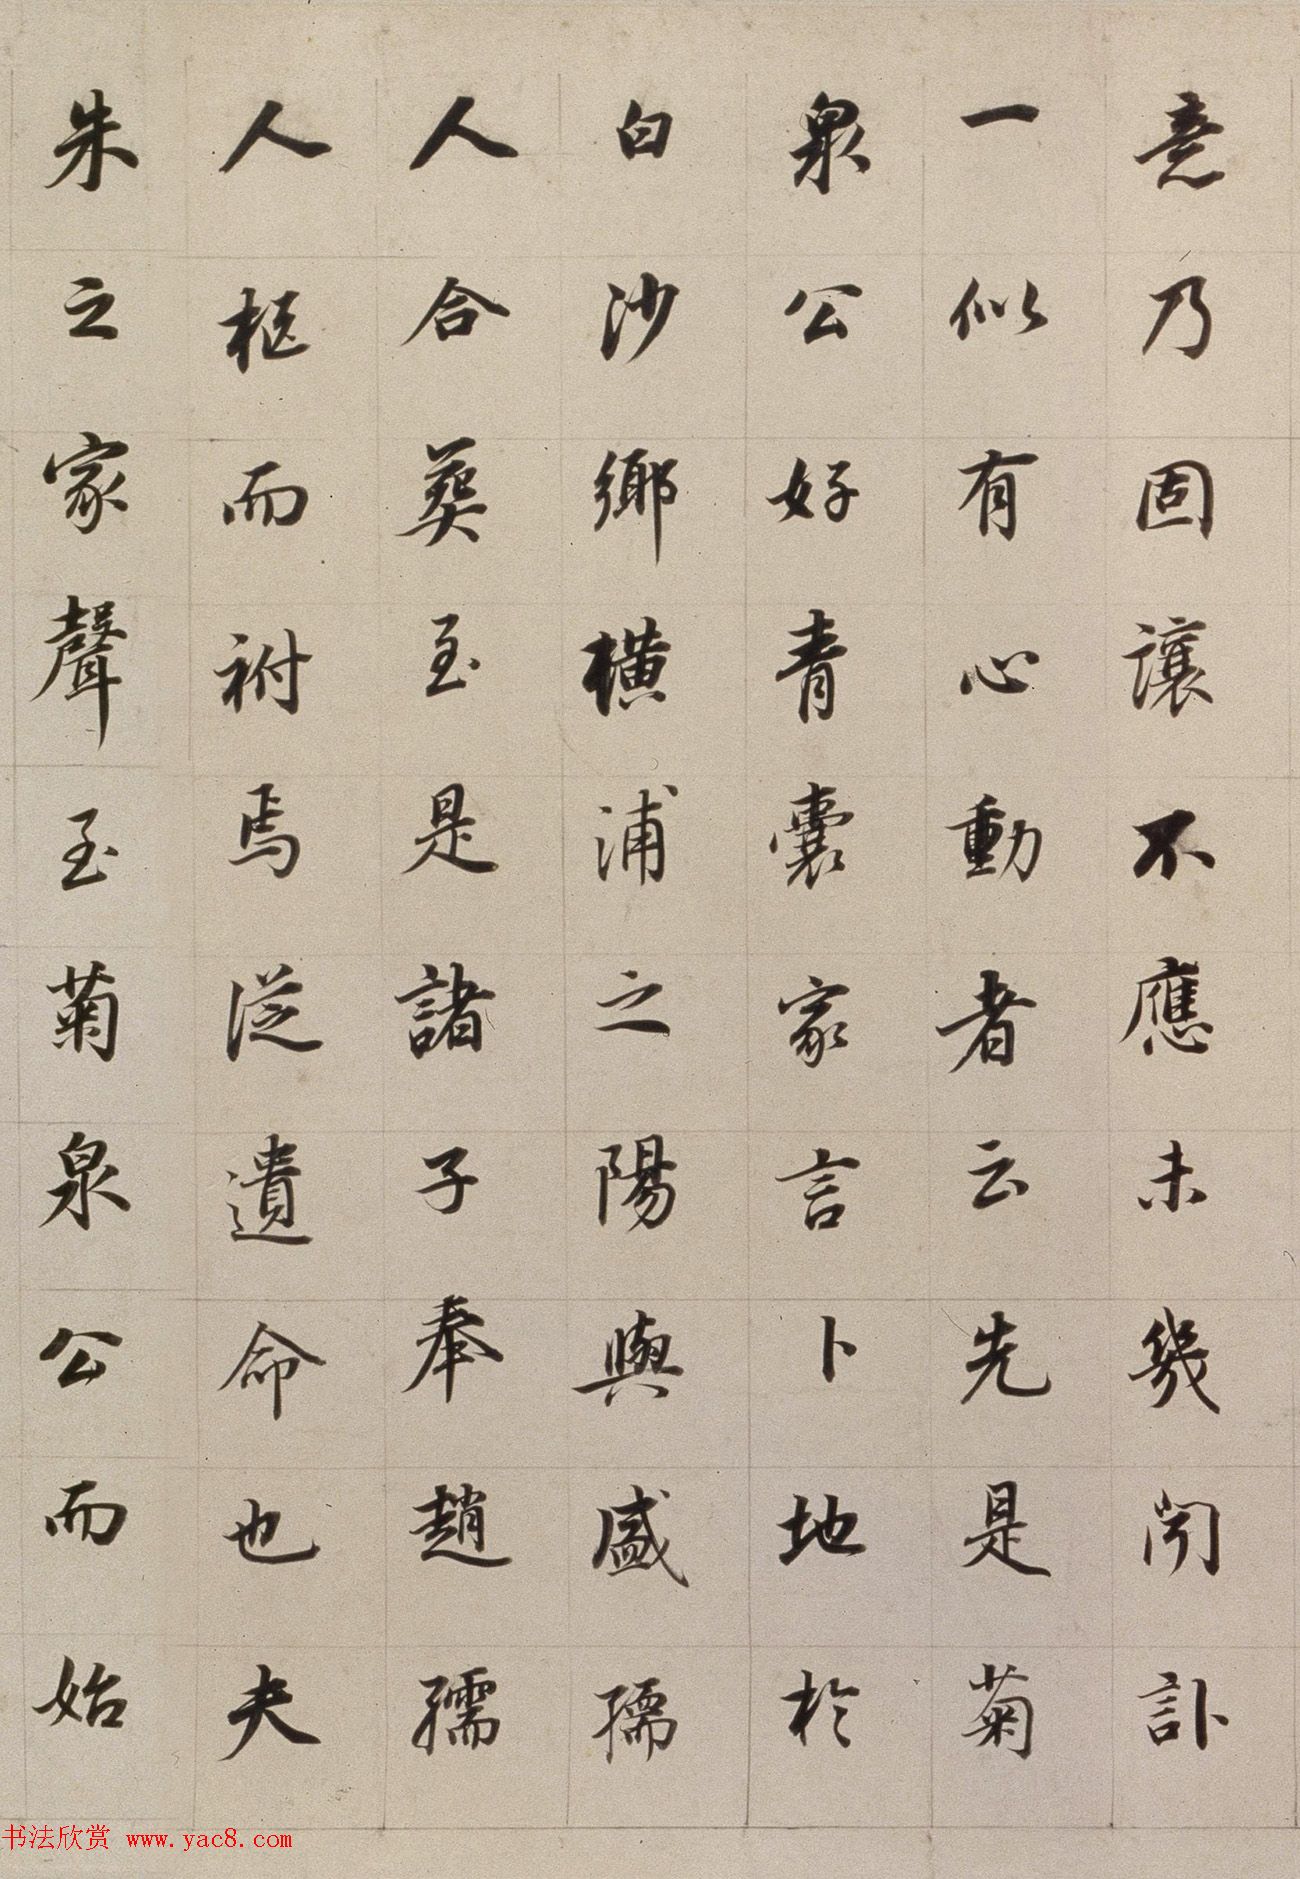 竟乃固讓不應未幾聞訃
一似有心動者云先是菊
泉公好青囊家言卜地於
白沙鄉橫浦之陽與盛孺
人合葬至是諸子奉趙孺
人柩而祔焉從遺命也夫
朱之家聲至菊泉公而始
书法欣赏 www.yac8.com